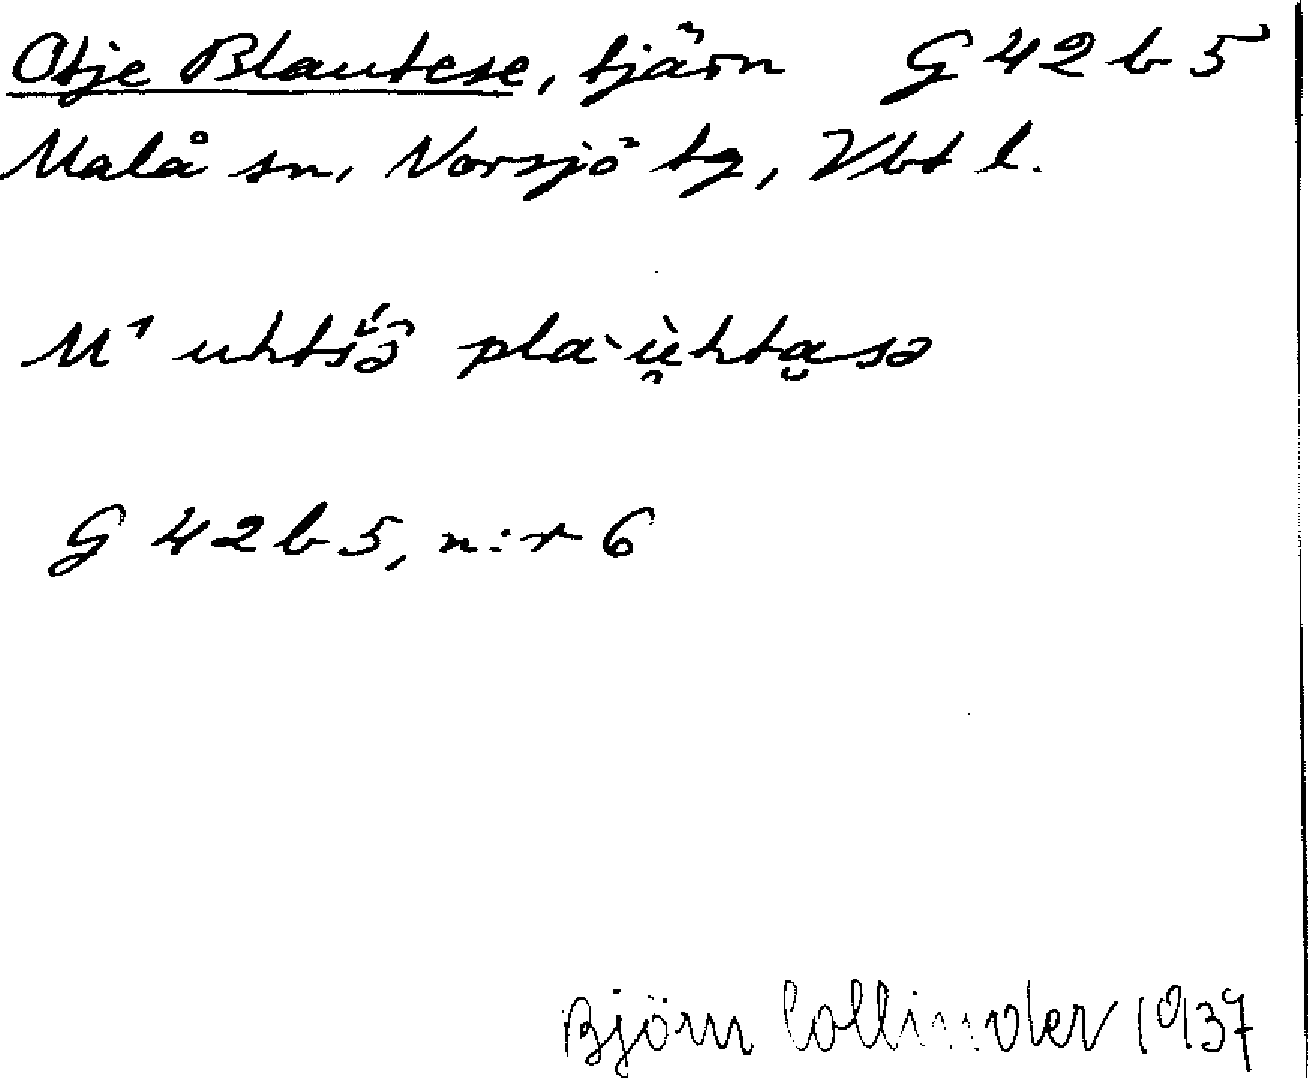 Otje Blautese, tjärn G 42 b 5
Malå sn, Norsjö tg, Vbt l.
M¹ uhtśə̑ pla·ù̯hta̮sə
G 42 b 5, n:r 6
Björn Collinder 1937